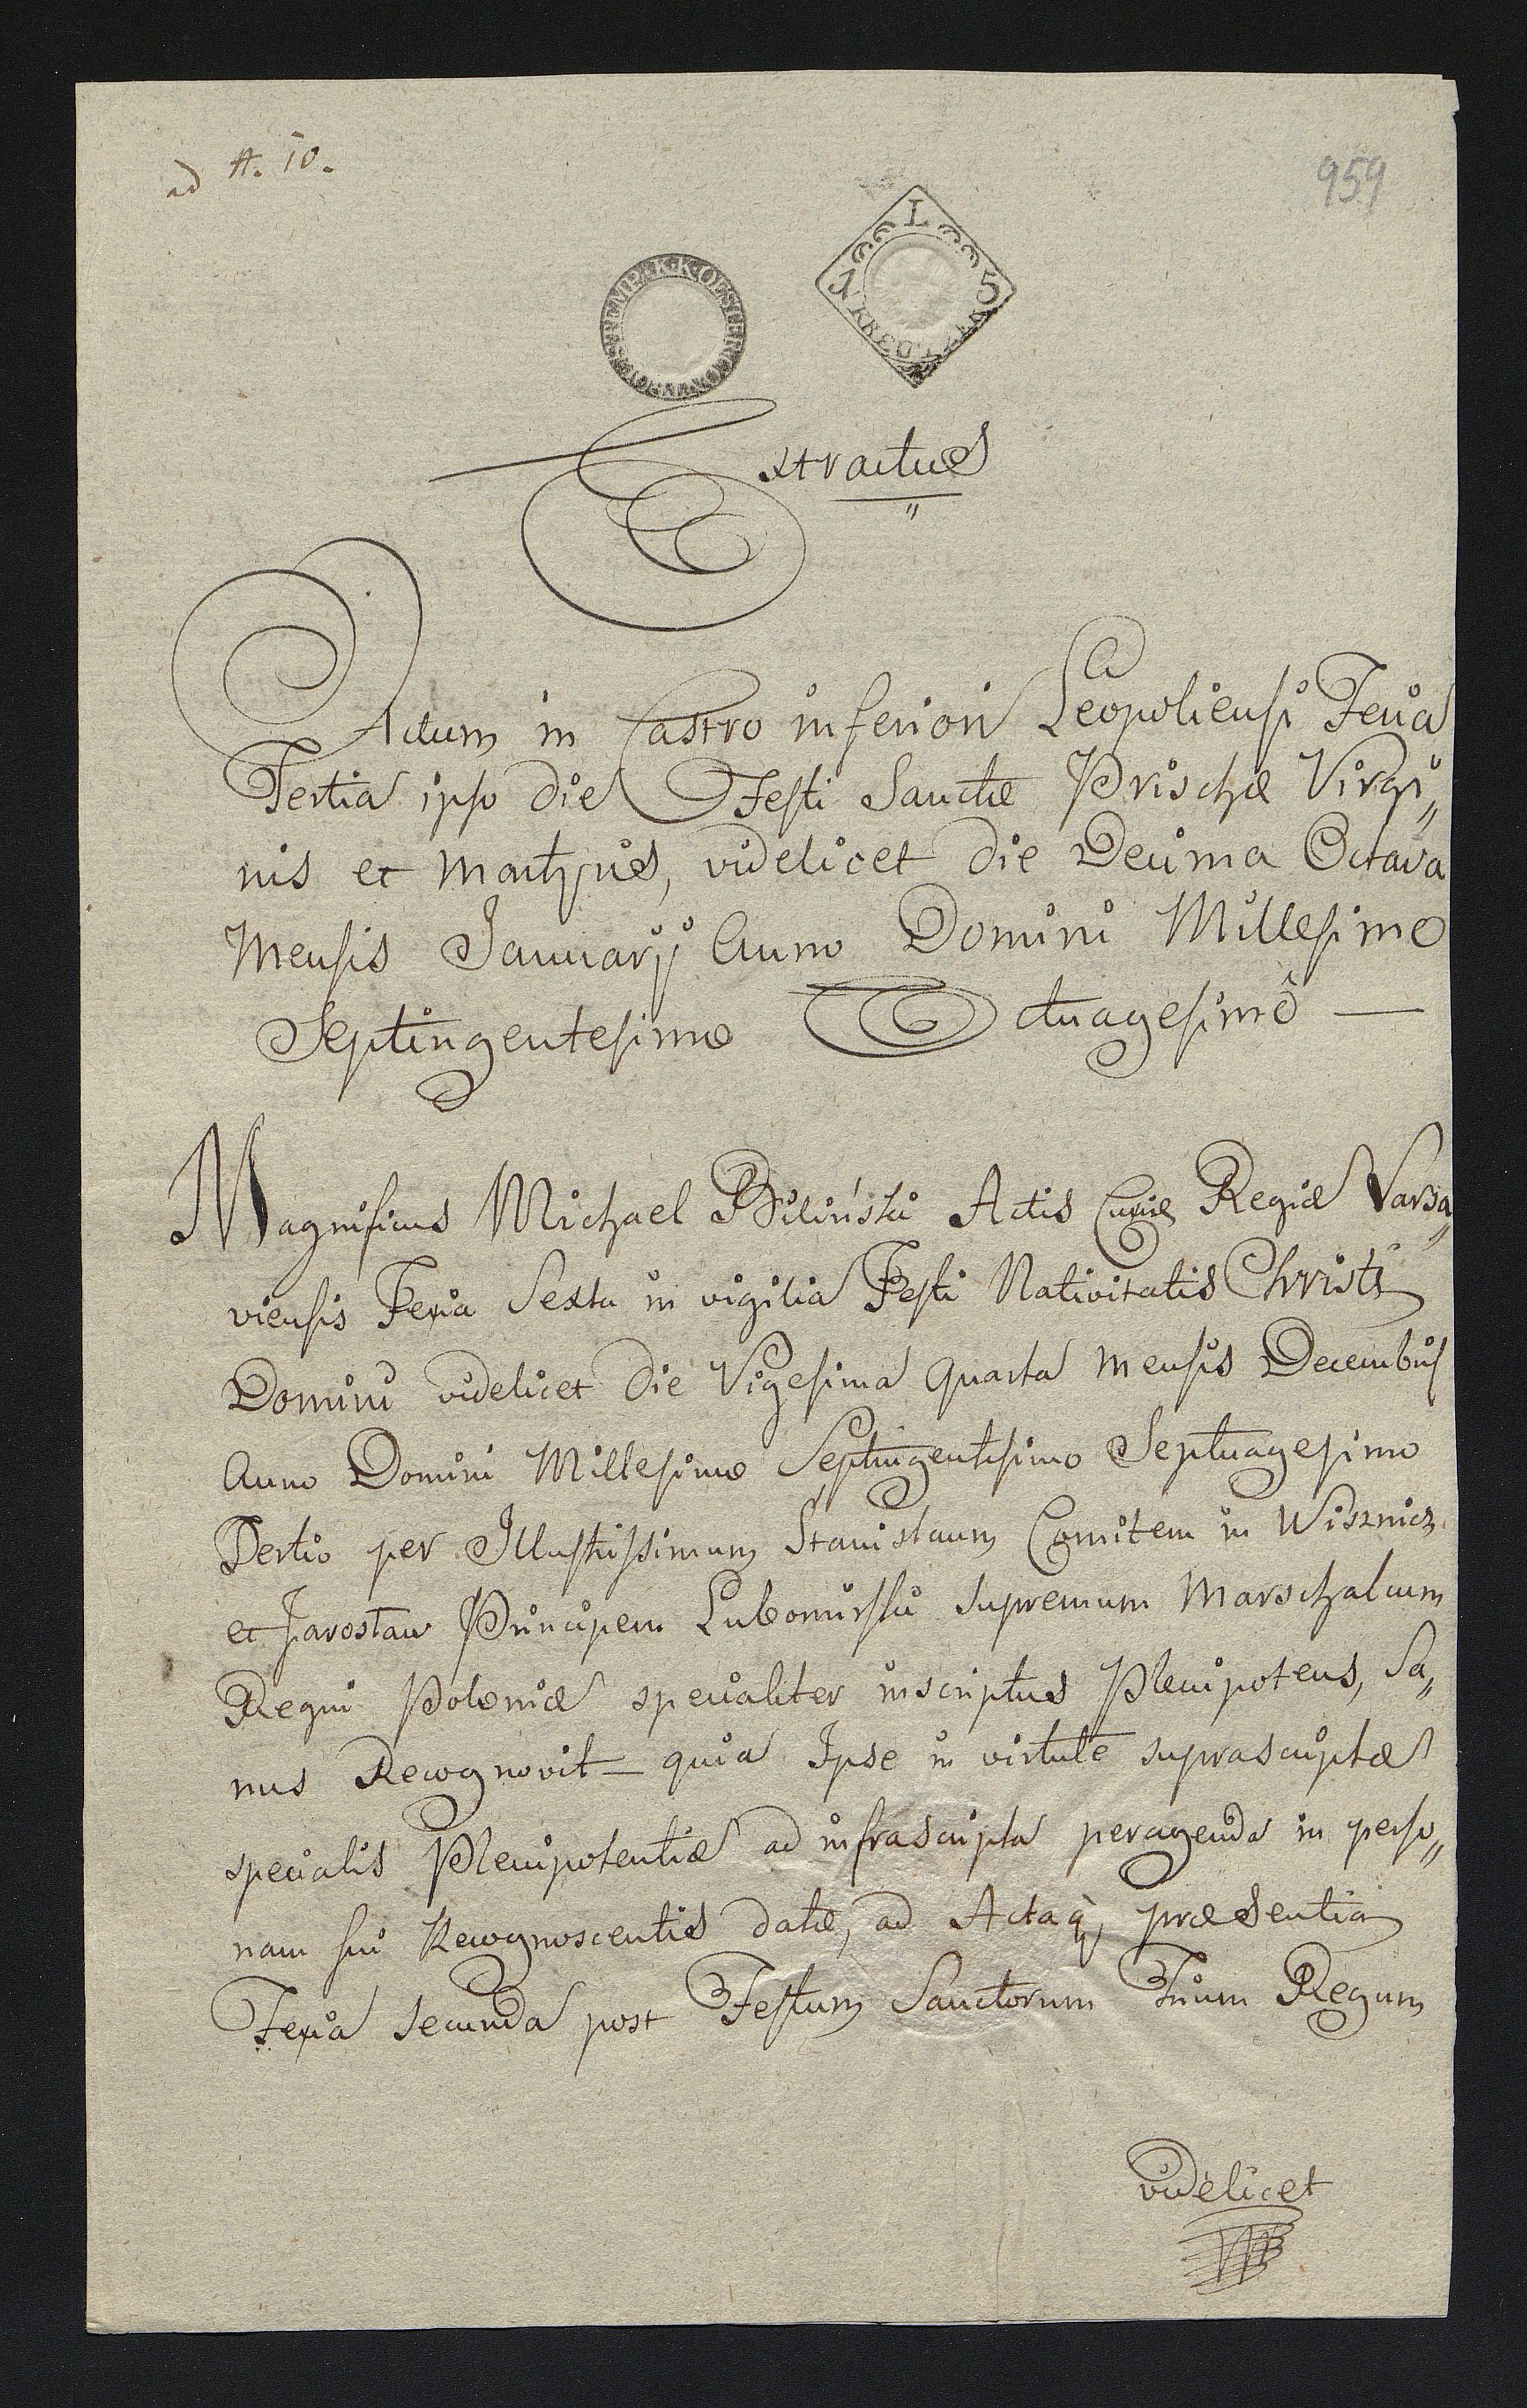 ad A. 10.
959
L
5
KREÜTZER
K. K. OESTERR
Extractus
Actum in Castro inferiori Leopoliensi Feria
Tertia ipso die Festi Sanctæ Prischæ Virgi„
nis et Martyris, videlicet die Decima Octava
Mensis Januarÿ Anno Domini Millesimo
Septingentesimo Octuagesimô —
Magnificus Michael Biliński Actis Curiæ Regiæ Varsa„
viensis Feria Sexta in vigilia Festi Nativitatis Christi
Domini videlicet die Vigesima quarta mensis Decembris
Anno Domini Millesimo Septingentesimo Septuagesimo
Tertio per Illustrissimum Stanislaum Comitem in Wisznicz
et Jarosław Principem Lubomirski supremum Marschalcum
Regni Poloniæ specialiter inscriptus Plenipotens, Sa„
nus Recognovit — quia Ipse in virtute suprascriptæ
specialis Plenipotentiæ ad infrascripta peragenda in perso„
nam sui Recognoscentis datæ, ad Actaq, præsentia
Feria secunda post Festum Sanctorum Trium Regum
videlicet